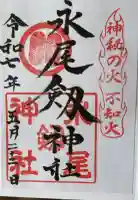 神秘の火 不知火
永尾剱神社
永尾
剱
神社
令和七年五月二二日